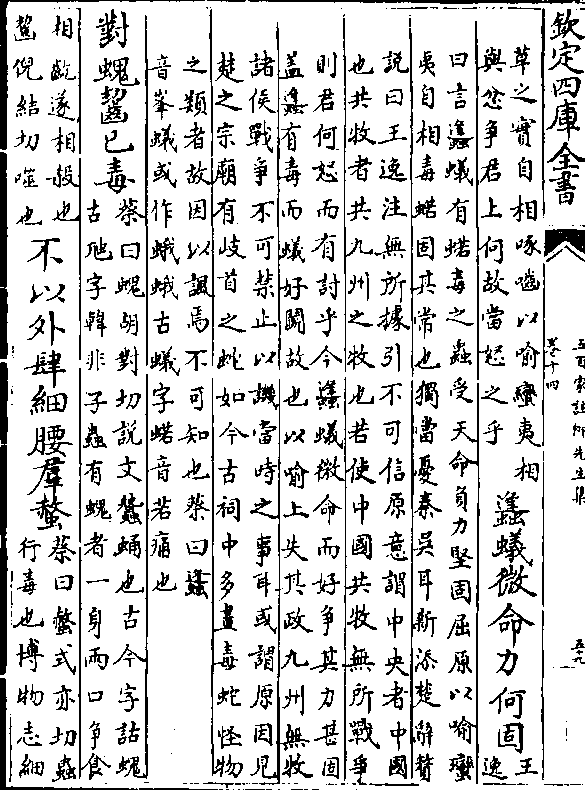 欽定四庫全書
五百家註柳先生集
卷十四
草之實自相啄嚙以喻蠻夷相
與忿爭君上何故當恕之乎
蠭蟻微命力何固
王
逸
曰言蠭蟻有蛒毒之蟲受天命負力堅固屈原以喻蠻
夷自相毒蛒固其常也獨當憂秦吳耳新添楚辭贊
説曰王逸注無所據引不可信原意謂中央者中國
也共牧者共九州之牧也若使中國共牧無所戰爭
則君何恕而有討乎今蠭蟻微命而好爭其力甚固
蓋蠭有毒而蟻好鬬故也以喻上失其政九州無牧
諸侯戰爭不可禁止以譏當時之事耳或謂原因見
楚之宗廟有歧首之蛇如今古祠中多畫毒蛇怪物
之類者故因以諷焉不可知也蔡曰蠭
音峯蟻或作蛾蛾古蟻字蛒音若痛也
對螝齧已毒
蔡曰螝胡對切説文蠶蛹也古今字詁螝
古虺字韓非子蟲有螝者一身兩口爭食
相齕遂相殺也
齧倪結切噬也
不以外肆細腰羣螫
蔡曰螫式亦切蟲
行毒也博物志細